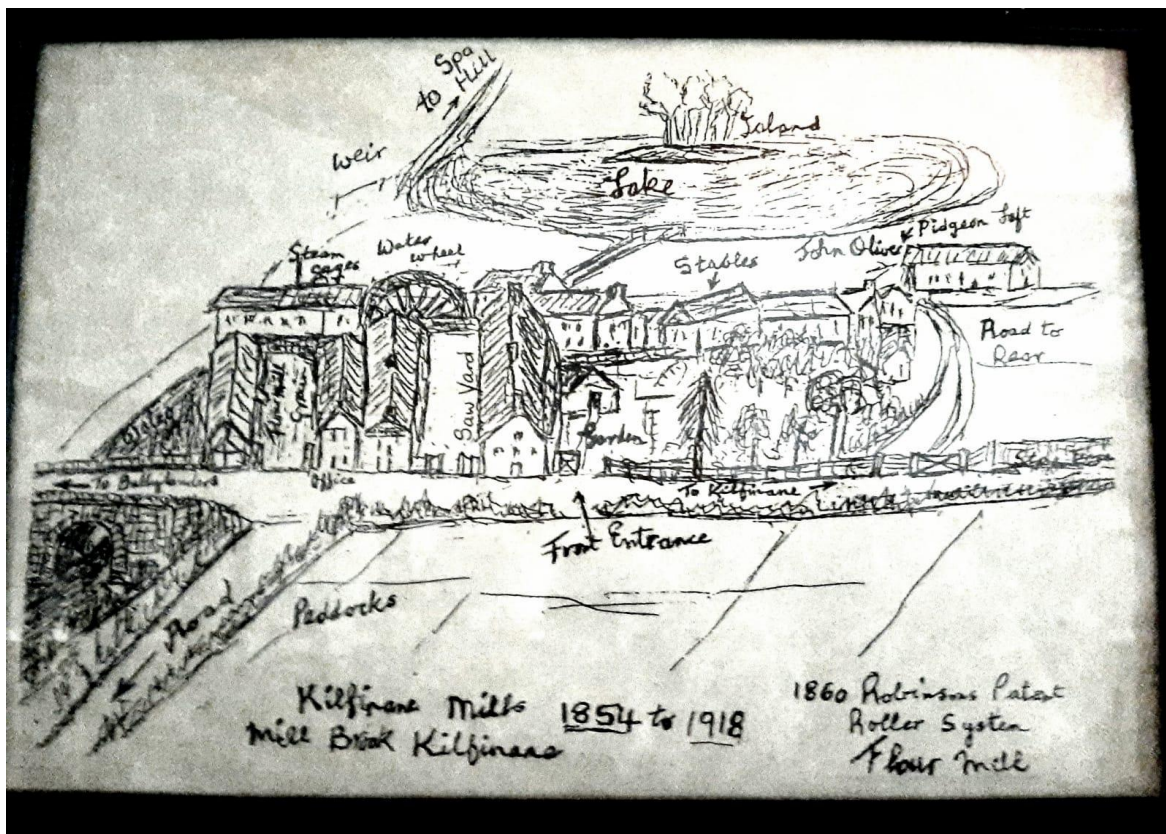 to Spa
Hill
Weir
Island
Lake
Pidgeon Loft
John Oliver
Steam
Water
wheel
Stables
Road to
Rear
Flour Mill
Saw Yard
Garden
Water
To Ballylanders
Office
To Kilfinane
Front Entrance
Road
Paddocks
Kilfinane Mills
Mill Brook Kilfinane
1854 to 1918
1860 Robinsons Patent
Roller System
Flour Mill